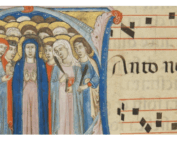 anto n